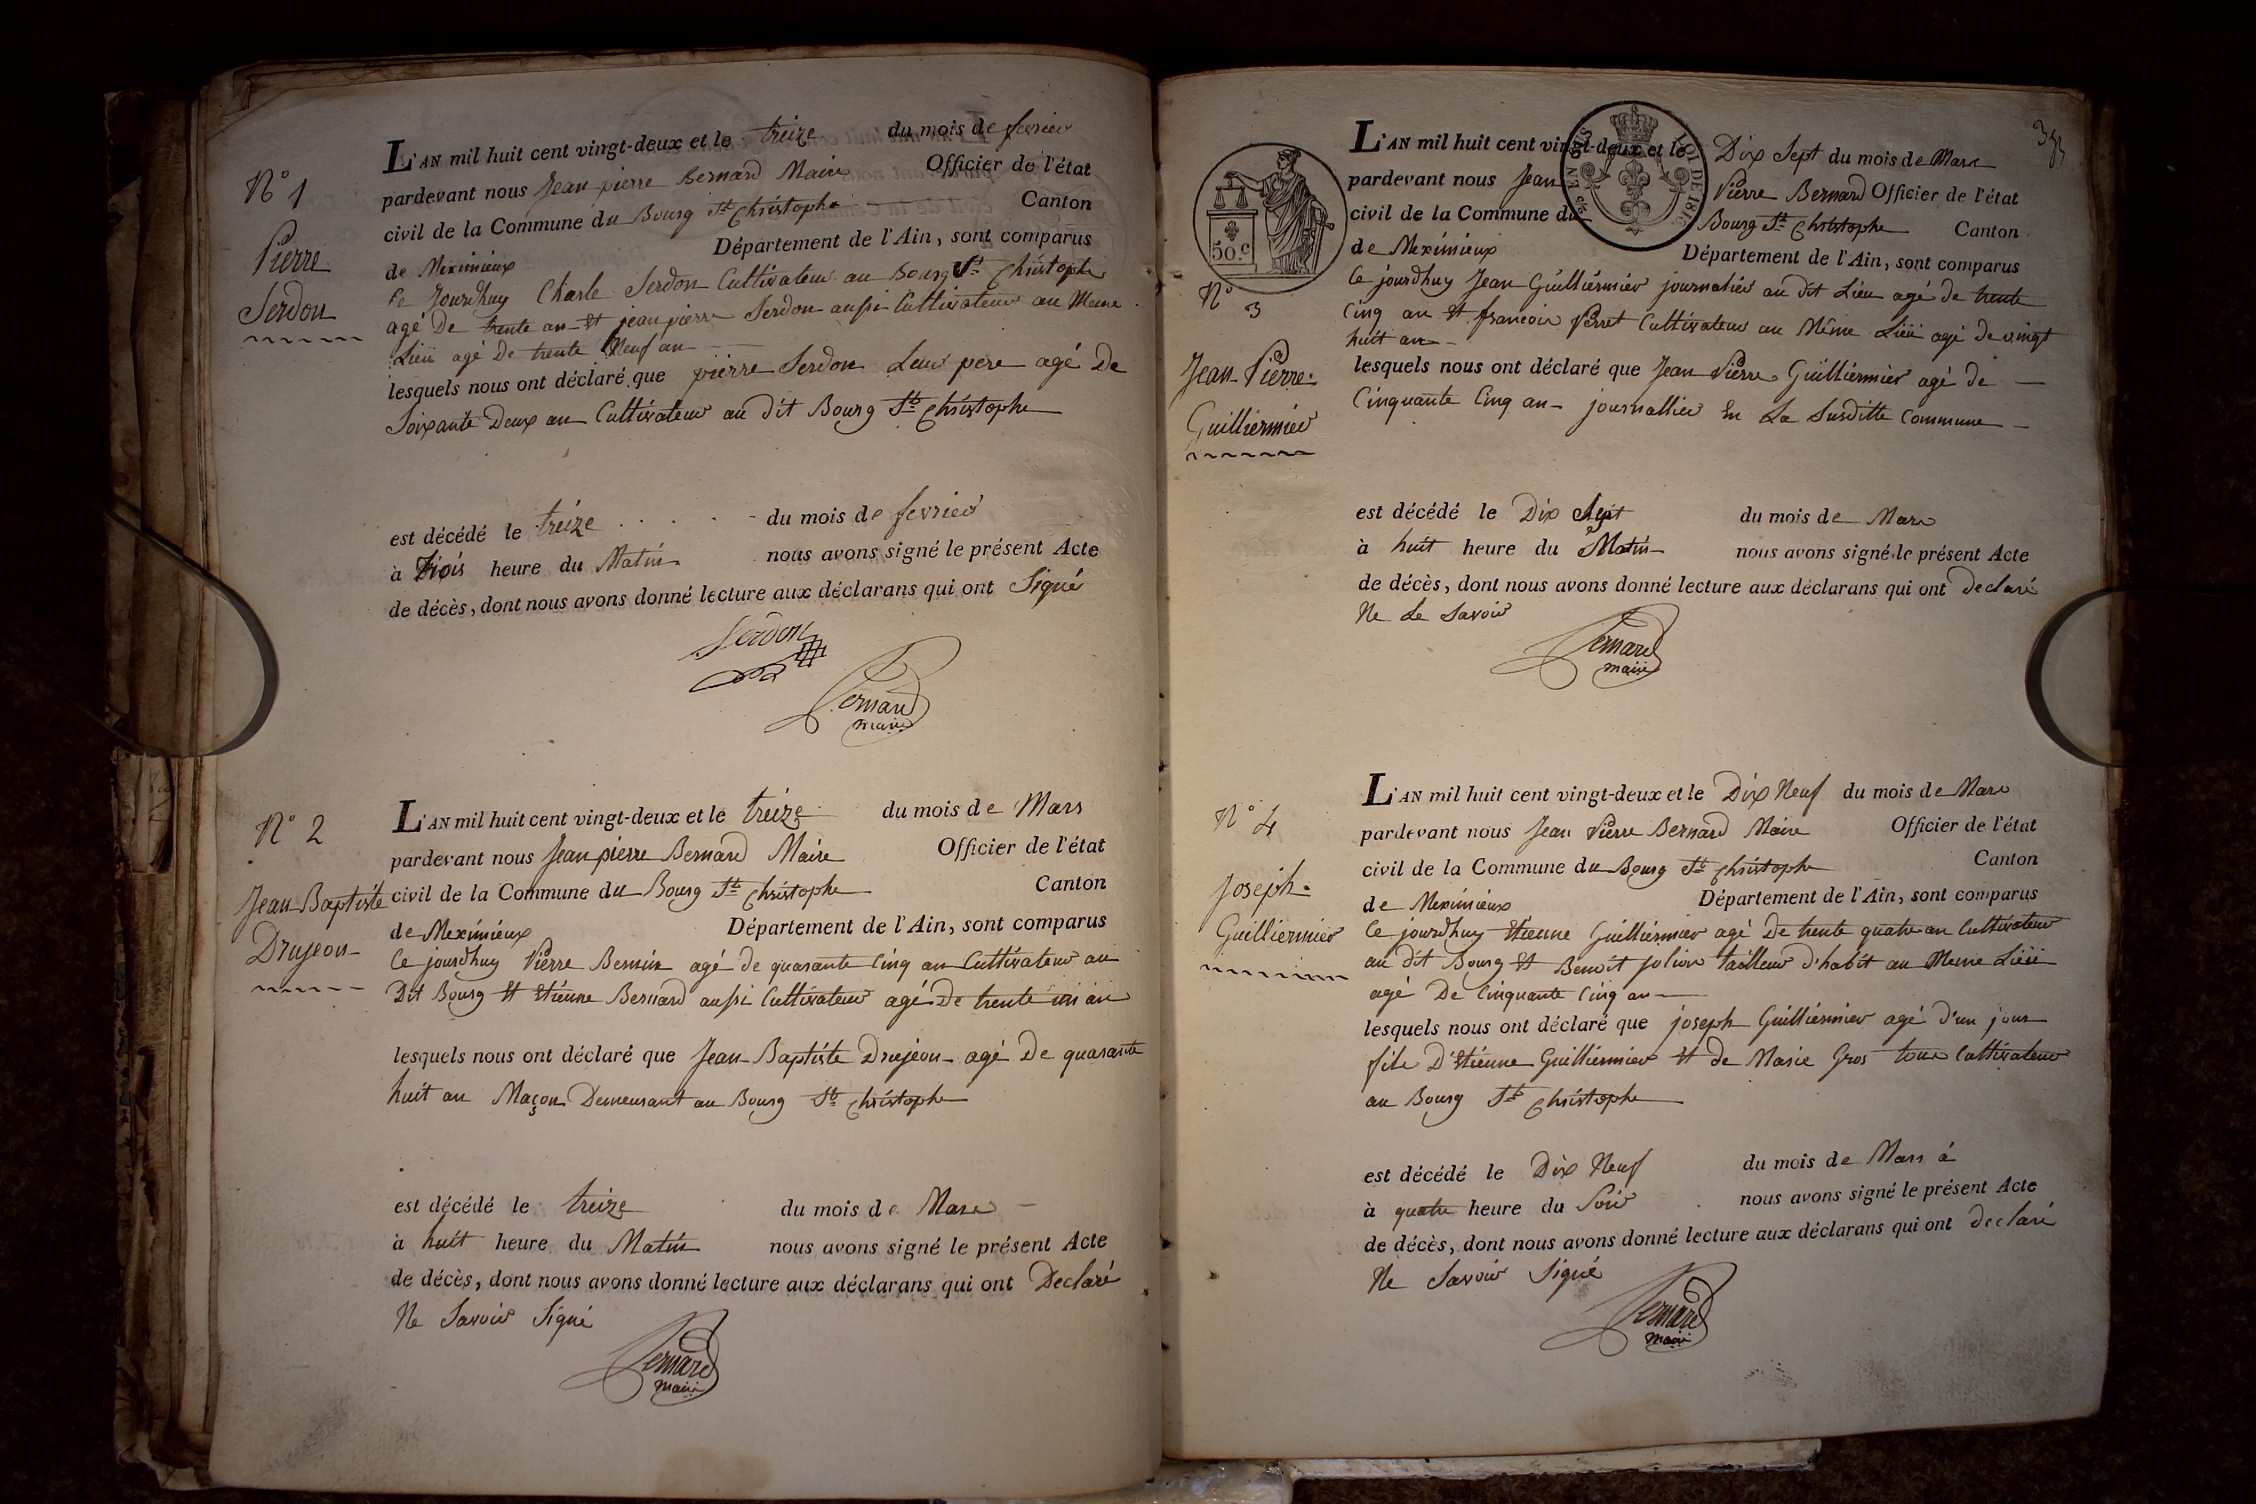 N° 1
Pierre
Serdon
L'AN mil huit cent vingt-deux et le treize du mois de fevrier
pardevant nous Jean pierre Bernard Maire Officier de l'état
civil de la Commune du Bourg St Christophe Canton
de Meximieux Département de l'Ain, sont comparus
Ce Jourdhuy Charle Serdon Cultivateur au Bourg St Christophe
agé De trente an Et jean pierre Serdon aussi Cultivateur au Meme
Lieü agé De trente Neuf an
lesquels nous ont déclaré que pierre Serdon Leur pere agé De
Soixante Deux an Cultivateur au dit Bourg St Christophe
est décédé le treize du mois de fevrier
à Trois heure du Matin nous avons signé le présent Acte
de décès, dont nous avons donné lecture aux déclarans qui ont Signé
Serdon
Bernard
maire
N° 2
Jean Baptiste
Drujeon
L'AN mil huit cent vingt-deux et le treize du mois de Mars
pardevant nous Jean pierre Bernard Maire Officier de l'état
civil de la Commune du Bourg St Christophe Canton
de Meximieux Département de l'Ain, sont comparus
Ce jourdhuy Pierre Bernin agé de quarante Cinq an Cultivateur au
Dit Bourg Et Etienne Bernard aussi Cultivateur agé De trente un an
lesquels nous ont déclaré que Jean Baptiste Drujeon agé De quarante
huit an Maçon Demeurant au Bourg St Christophe
est décédé le treize du mois de Mars
à huit heure du Matin nous avons signé le présent Acte
de décès, dont nous avons donné lecture aux déclarans qui ont Declaré
Ne Savoir Signé
Bernard
maire
50.c
EN SUS
LOI DE 1816
N° 3
Jean Pierre
Guilliermier
L'AN mil huit cent vingt-deux et le Dix Sept du mois de Mars
pardevant nous Jean Pierre Bernard Officier de l'état
civil de la Commune du Bourg St Christophe Canton
de Meximieux Département de l'Ain, sont comparus
Ce jourdhuy Jean Guilliermier journalier au dit Lieu agé de trente
Cinq an Et francois Perret Cultivateur au Même Lieü agé de vingt
huit an
lesquels nous ont déclaré que Jean Pierre Guilliermier agé de
Cinquante Cinq an journallier En La Susditte Commune
est décédé le Dix Sept du mois de Mars
à huit heure du Matin nous avons signé le présent Acte
de décès, dont nous avons donné lecture aux déclarans qui ont declaré
Ne Le Savoir
Bernard
maire
N° 4
Joseph
Guilliermier
L'AN mil huit cent vingt-deux et le Dix Neuf du mois de Mars
pardevant nous Jean Pierre Bernard Maire Officier de l'état
civil de la Commune du Bourg St Christophe Canton
de Meximieux Département de l'Ain, sont comparus
Ce jourdhuy Etienne Guilliermier agé De trente quatre an Cultivateur
au dit Bourg Et Benoit Jolivr tailleur d'habit au Meme Lieü
agé De Cinquante Cinq an
lesquels nous ont déclaré que joseph Guilliermier agé d'un jour
fils D'Etienne Guilliermier Et de Marie Gros tous Cultivateur
au Bourg St Christophe
est décédé le Dix Neuf du mois de Mars á
à quatre heure du Soir nous avons signé le présent Acte
de décès, dont nous avons donné lecture aux déclarans qui ont declaré
Ne Savoir Signé
Bernard
maire